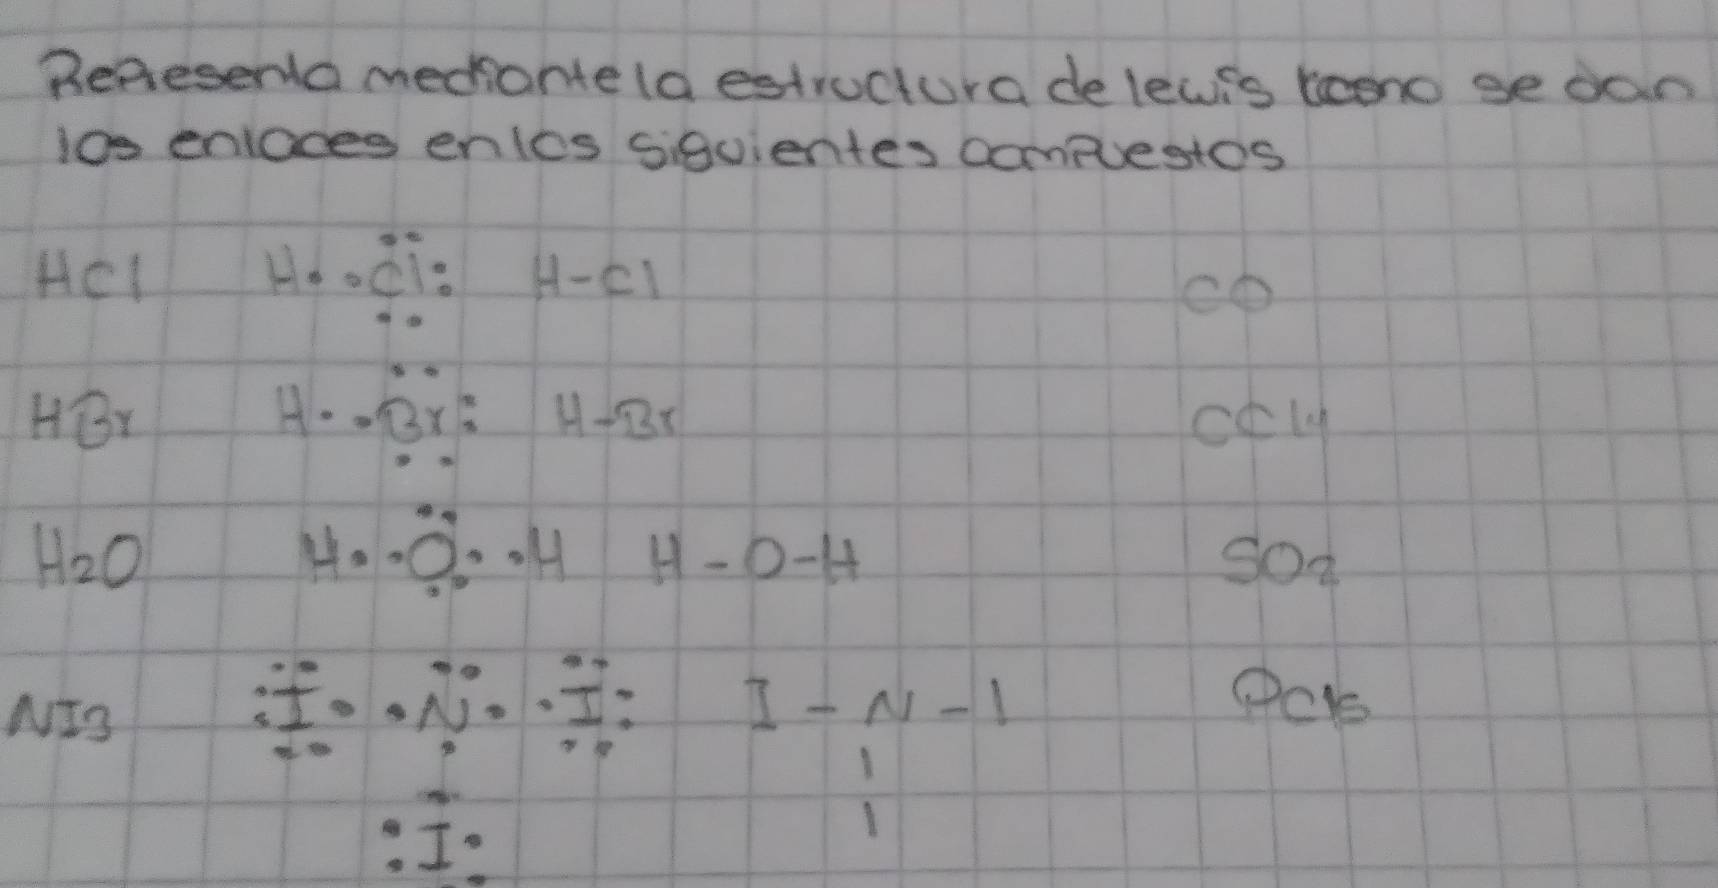 Representa mediante la estructura de lewis como se dan
los enlaces en los siguientes compuestos
HCl H· ·Cl: H-Cl CO
HBr H· ·Br: H-Br CCl4
H2O H· ·O· ·H H-O-H SO2
NI3 :I· ·N· ·I: I-N-I PCl5
I
:I· I